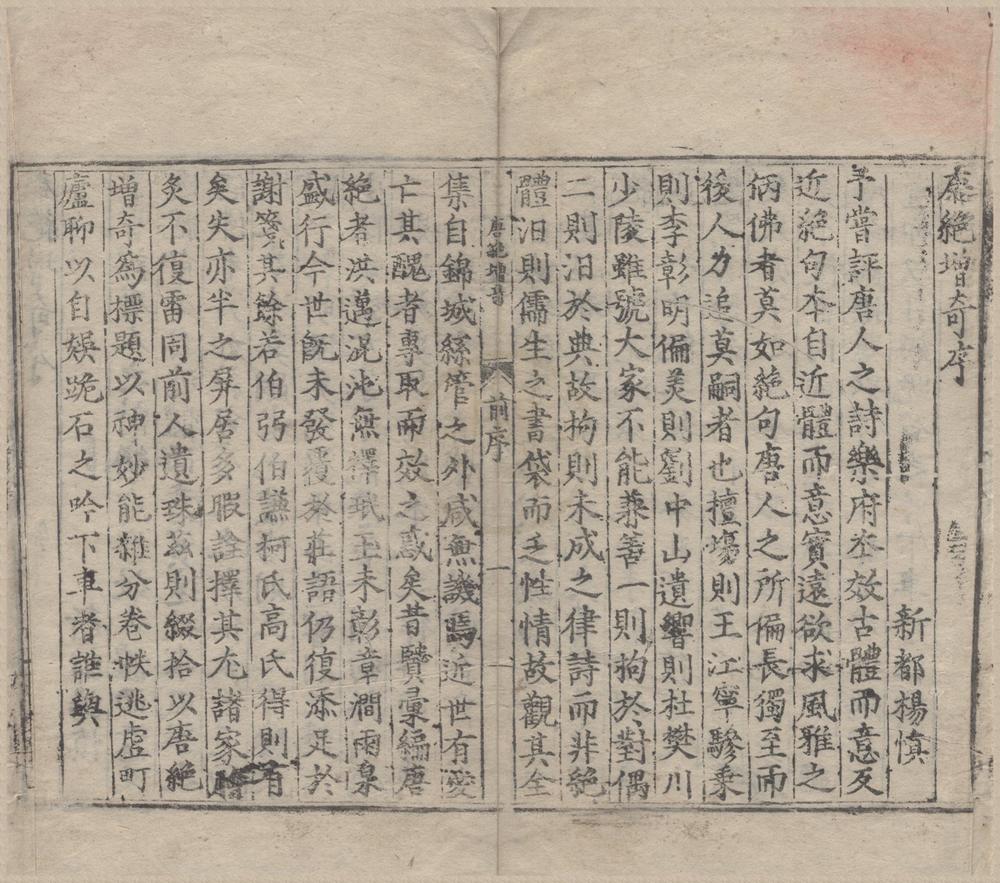 唐絶增奇序
新都楊慎
予嘗評唐人之詩樂府本效古體而意反
近絶句本自近體而意實遠欲求風雅之
仿佛者莫如絶句唐人之所偏長獨至而
後人力追莫嗣者也擅塲則王江寧驂乘
則李彰明偏美則劉中山遺響則杜樊川
少陵雖號大家不能兼善一則拘於對偶
二則汨於典故拘則未成之律詩而非絶
體汨則儒生之書袋而乏性情故觀其全
唐絶增奇 前序 一
集自錦城絲管之外咸無譏焉近世有愛
亡其醜者專取而效之惑矣昔賢彙編唐
絶者洪邁混沌無擇珉玉未彰章澗兩泉
盛行今世旣未發覆於莊語仍復添足於
謝箋其餘若伯弜伯謙柯氏高氏得則有
矣失亦半之屏居多暇詮擇其尤諸家膾
炙不復雷同前人遺珠兹則綴拾以唐絶
增奇爲標題以神妙能雜分卷帙逃虛町
廬聊以自娱跪石之吟下車者誰與